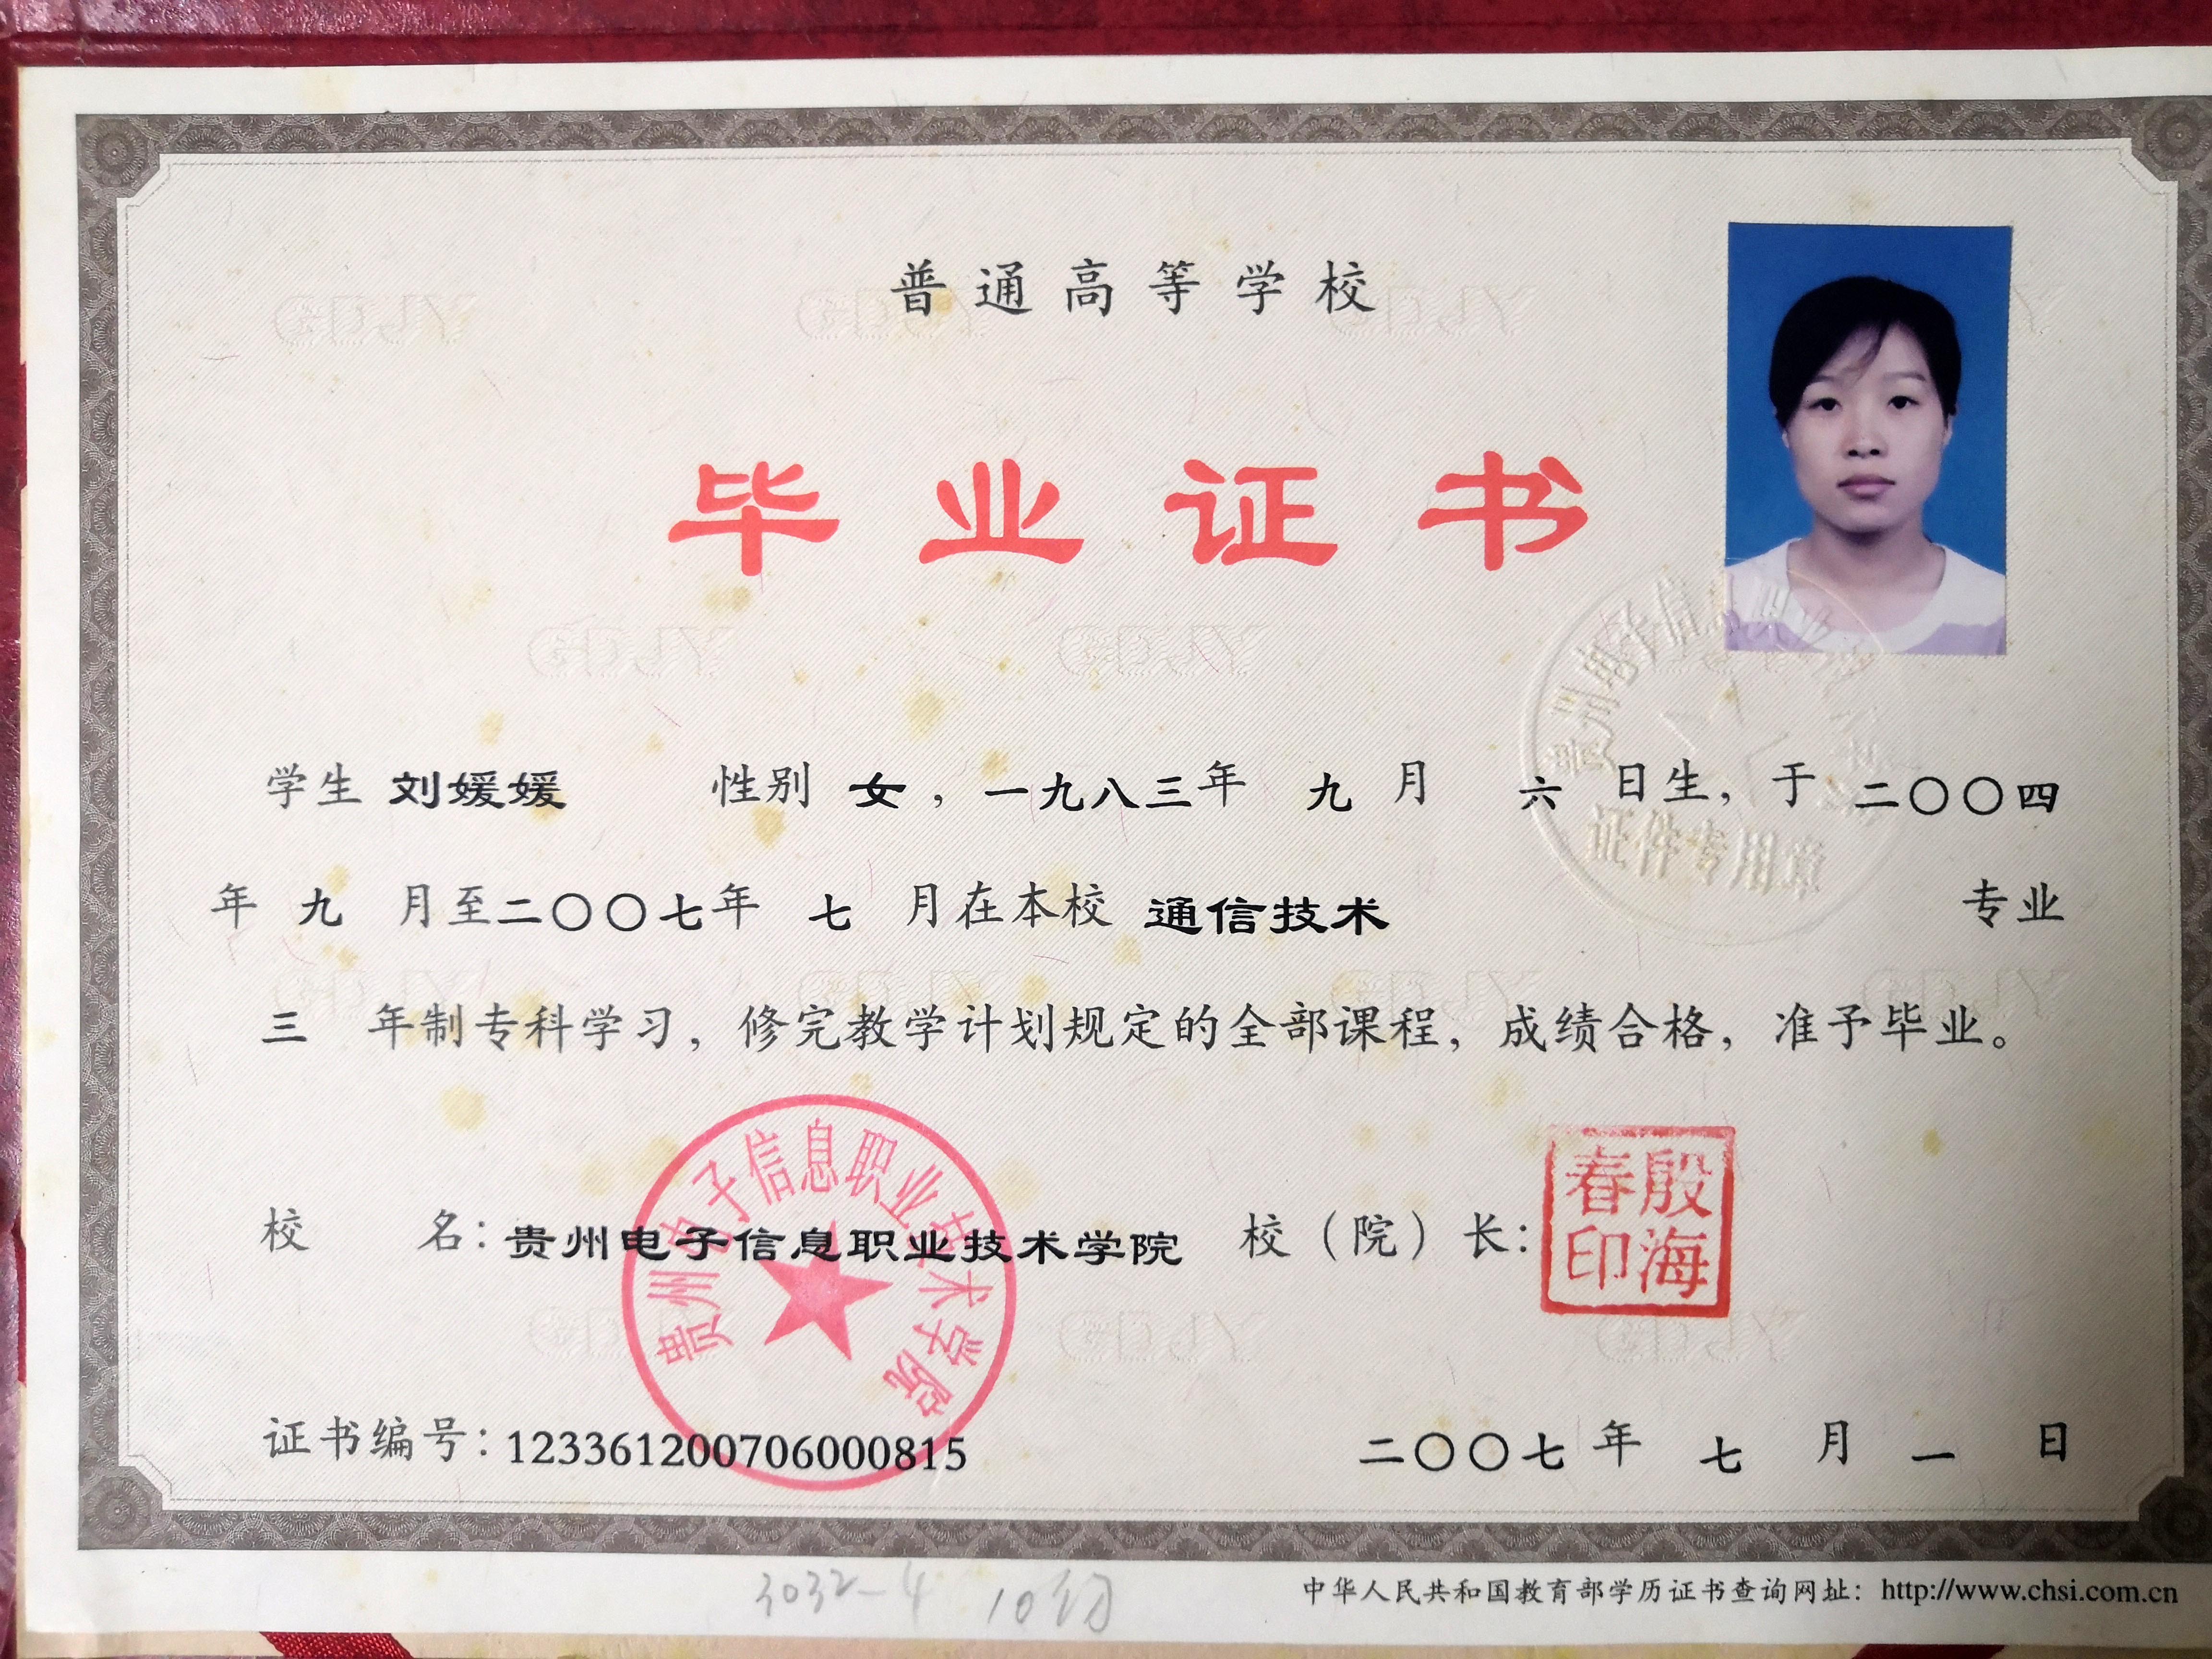 普通高等学校
毕业证书
学生 刘媛媛 性别 女，一九八三年 九 月 六 日生，于 二〇〇四
年 九 月至二〇〇七年 七 月在本校 通信技术 专业
三 年制专科学习，修完教学计划规定的全部课程，成绩合格，准予毕业。
贵州电子信息职业技术学院
证件专用章
校 名：贵州电子信息职业技术学院 校（院）长：
贵州电子信息职业技术学院
殷海春印
证书编号：123361200706000815 二〇〇七年 七 月 一 日
3032-4
中华人民共和国教育部学历证书查询网址：http://www.chsi.com.cn